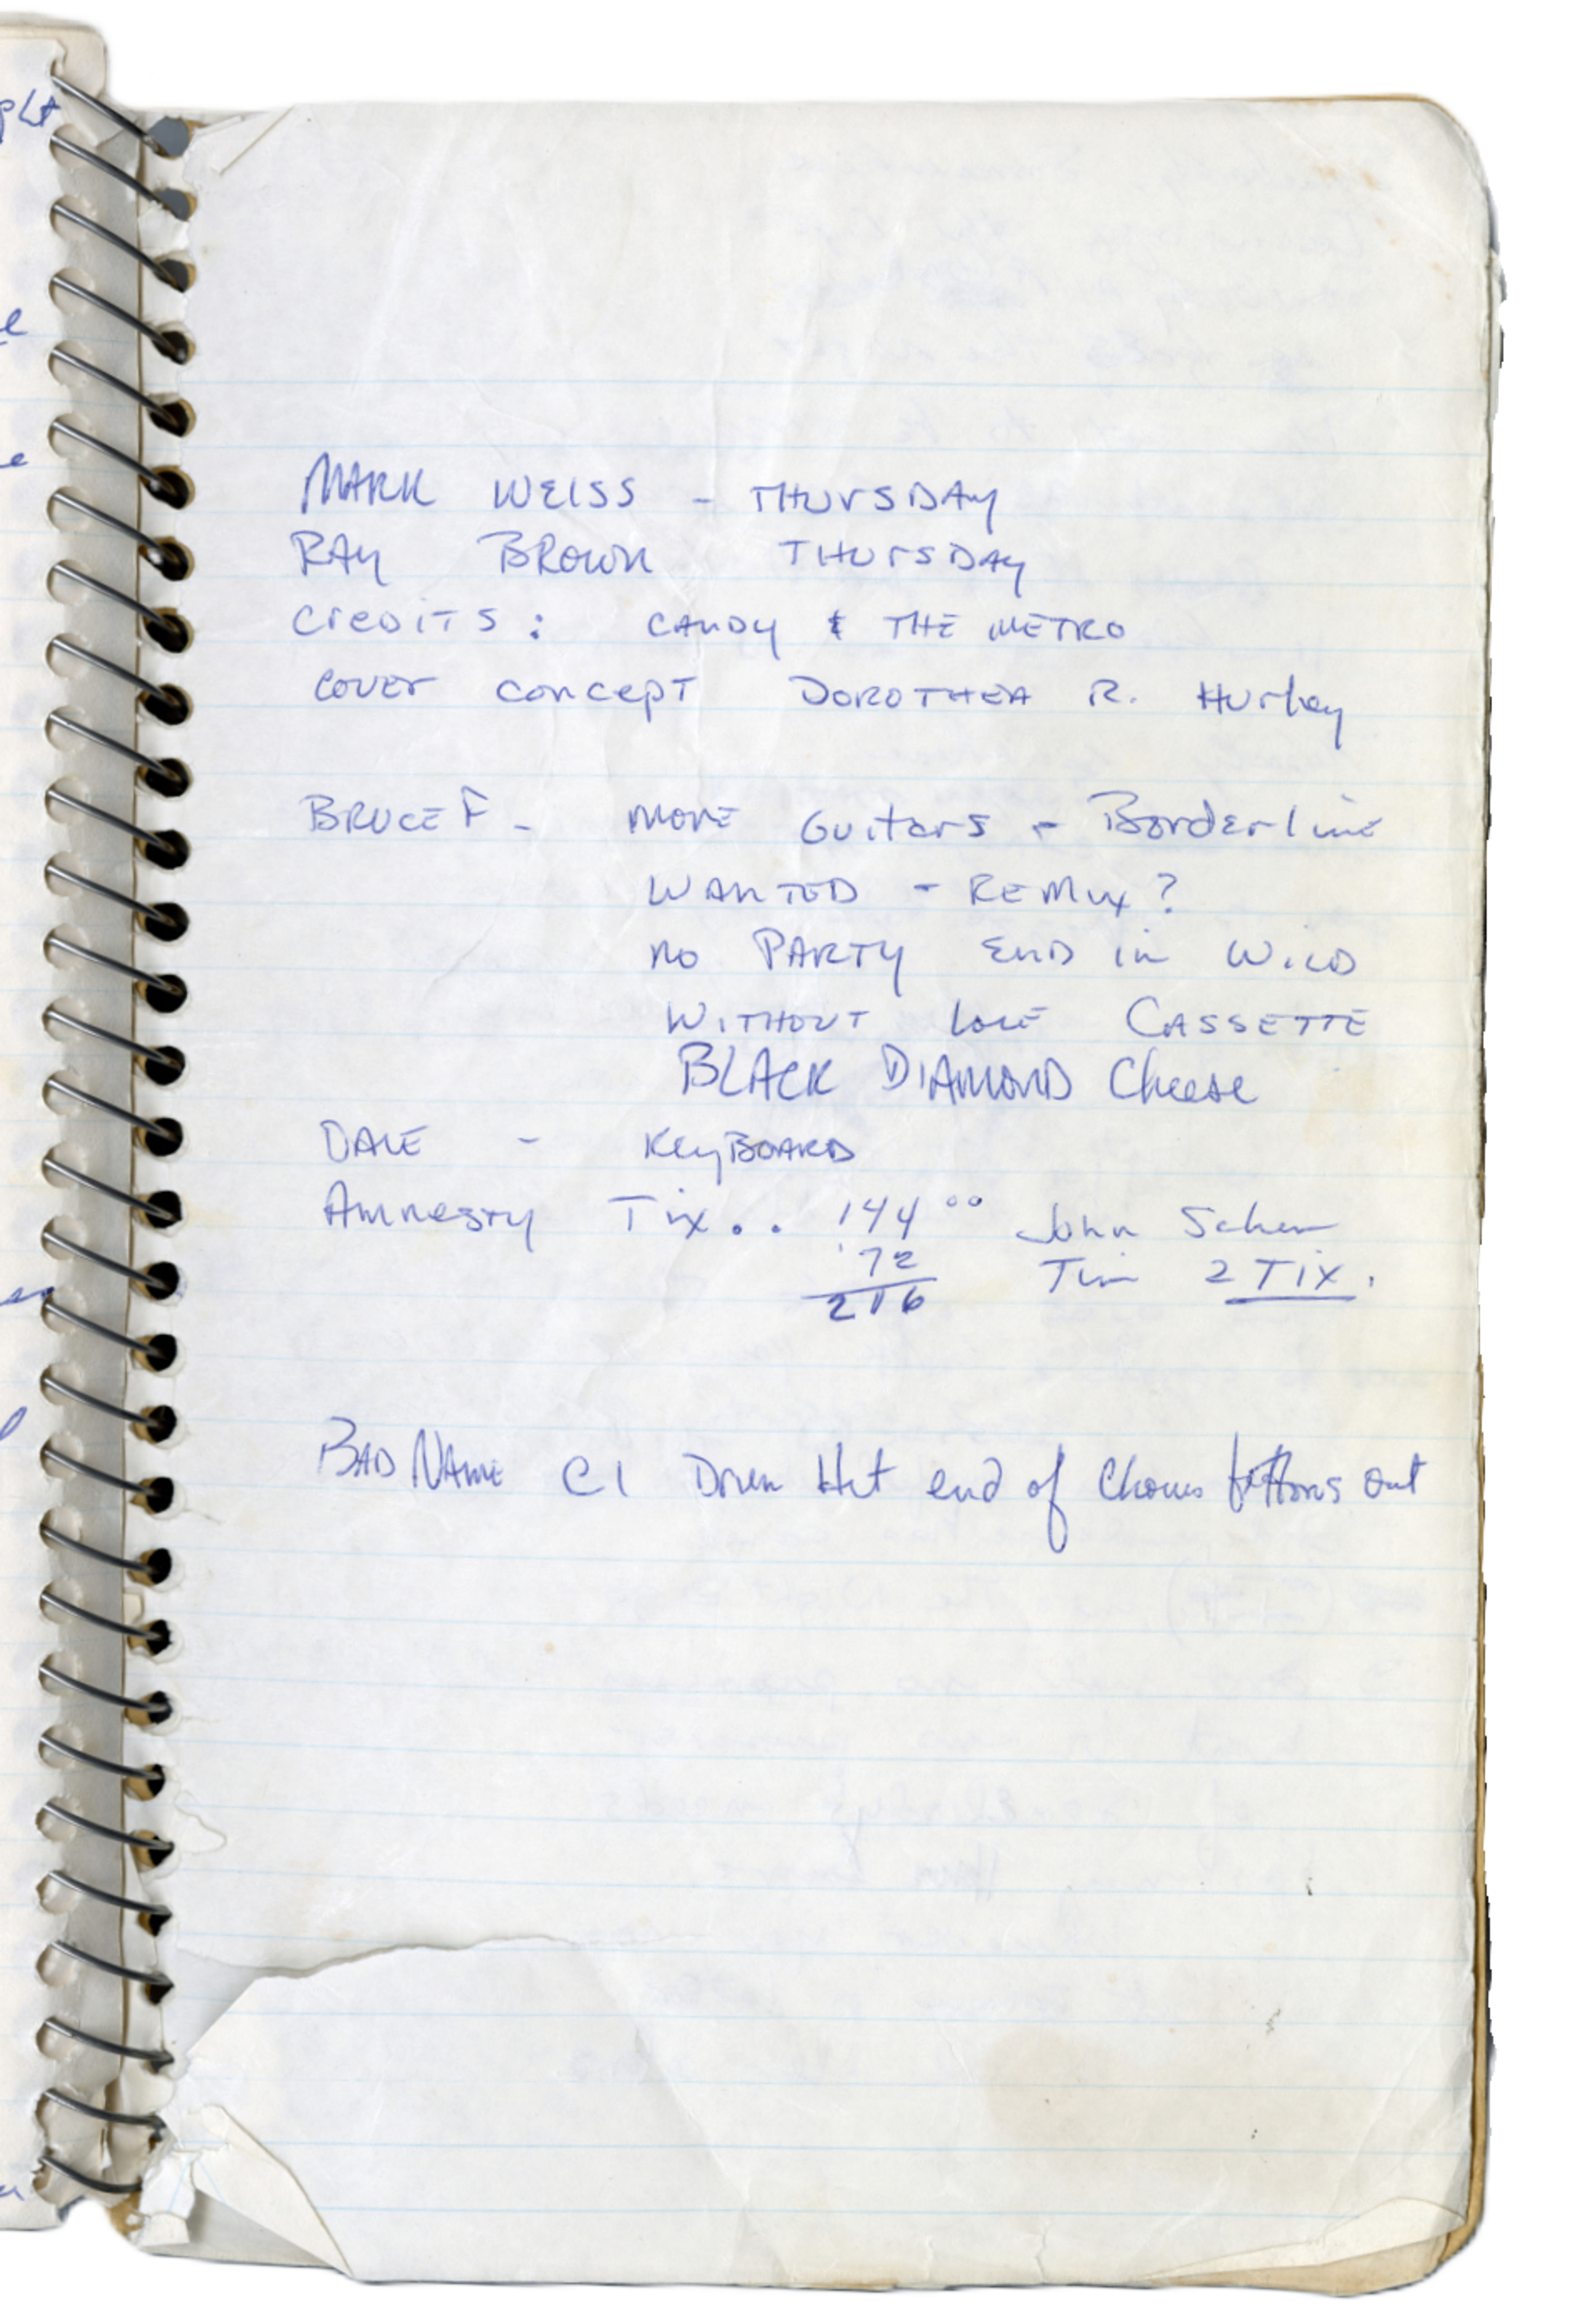 MARK WEISS - THURSDAY
RAY BROWN THURSDAY
CREDITS: CANDY & THE METRO
COVER CONCEPT DOROTHEA R. Hurley
BRUCE F - MORE Guitars - Borderline
WANTED - REMIX?
NO PARTY END IN WILD
WITHOUT LOVE CASSETTE
BLACK DIAMOND Cheese
DALE - KEYBOARD
Amnesty Tix.. 144 00 John Scher
72 Tim 2 TIX.
216
BAD NAME C1 Drum Hit end of Chorus out